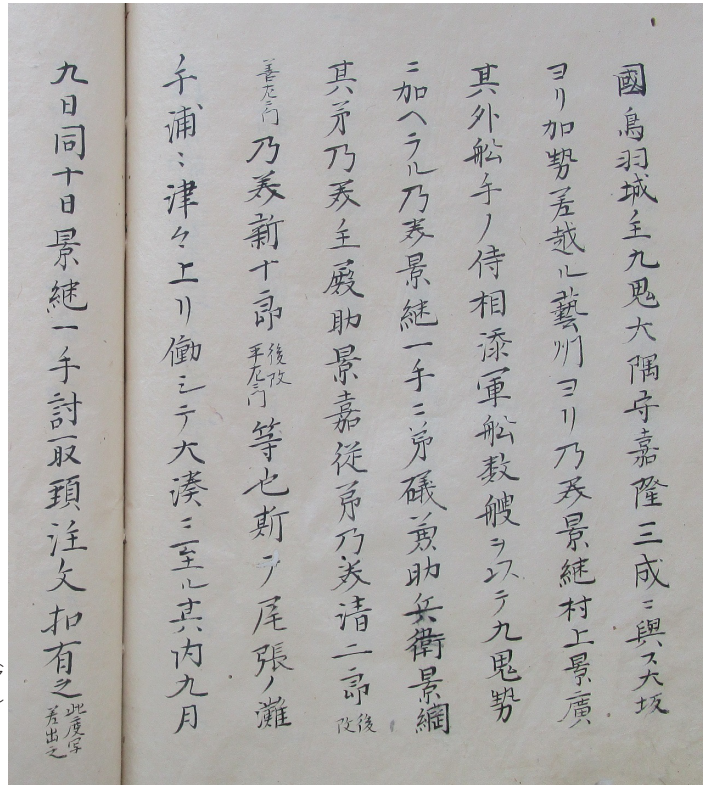 國鳥羽城主九鬼大隅守嘉隆三成ニ與ス大坂
ヨリ加勢差越ル藝州ヨリ乃美景継村上景廣
其外船手ノ侍相添軍船数艘ヲ以テ九鬼勢
ニ加ヘラル乃美景継一手ニ弟磯兼助兵衛景綱
其弟乃美主殿助景嘉従弟乃美清二郎後改
善左衛門乃美新十郎後改平左衛門等也斯テ尾張ノ灘
手浦ニ津々上リ働シテ大湊ニ至ル其内九月
九日同十日景継一手討取頭注文扣有之此度写差出之